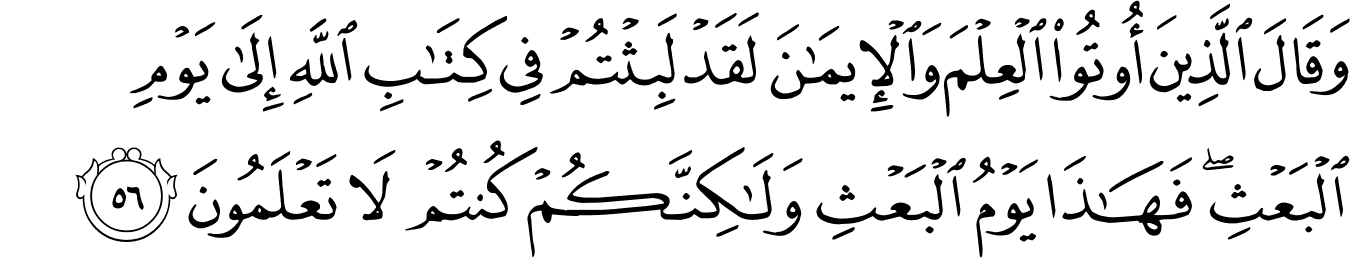 وَقَالَ ٱلَّذِينَ أُوتُوا۟ ٱلْعِلْمَ وَٱلْإِيمَـٰنَ لَقَدْ لَبِثْتُمْ فِى كِتَـٰبِ ٱللَّهِ إِلَىٰ يَوْمِ
ٱلْبَعْثِ ۖ فَهَـٰذَا يَوْمُ ٱلْبَعْثِ وَلَـٰكِنَّكُمْ كُنتُمْ لَا تَعْلَمُونَ ٥٦